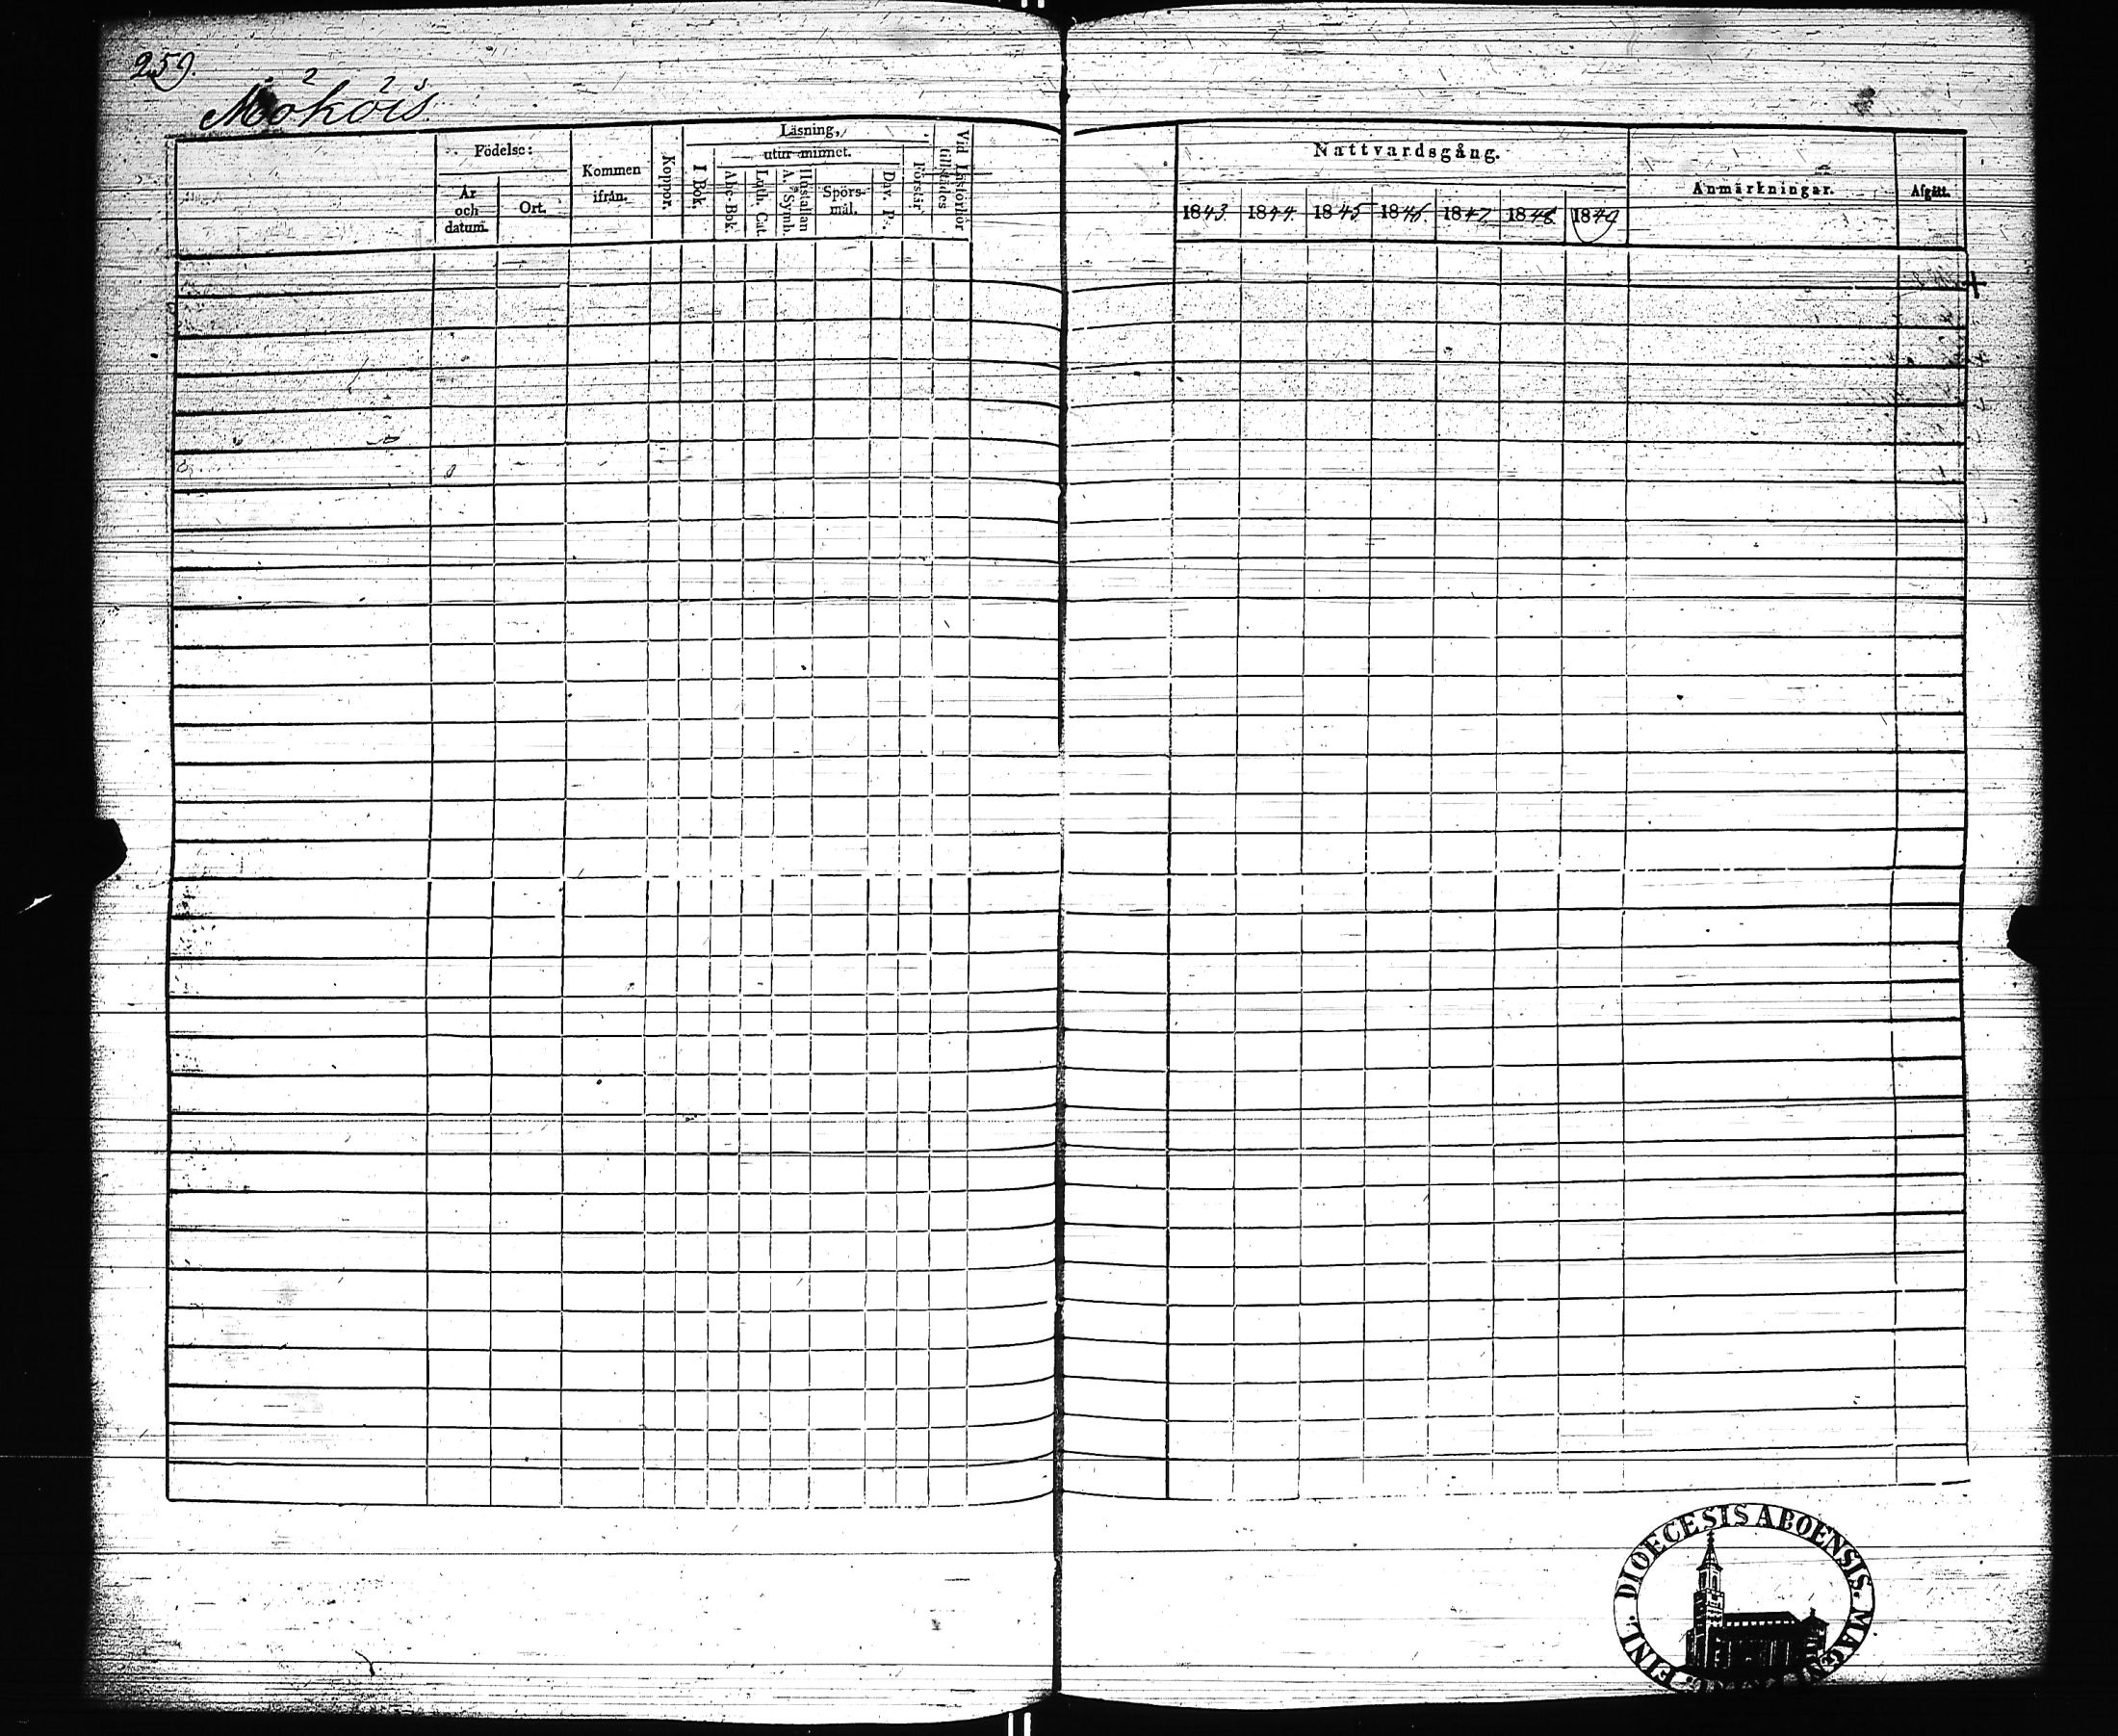 259.
Möhöis.
Födelse:
År och datum.
Ort.
Kommen ifrån.
Koppor.
Läsning,
I Bok.
utur minnet.
Abc-Bok
Luth. Cat.
Hustaflan A. Symb.
Spörs-mål.
Dav. Ps.
Förstår
Vid Läsförhör tillstädes
Nattvardsgång.
1843. 1844. 1845 1846. 1847 1848 1849
Anmärkningar.
Afgått.
DIOECESIS ABOENSIS. MAGNI
FINL.